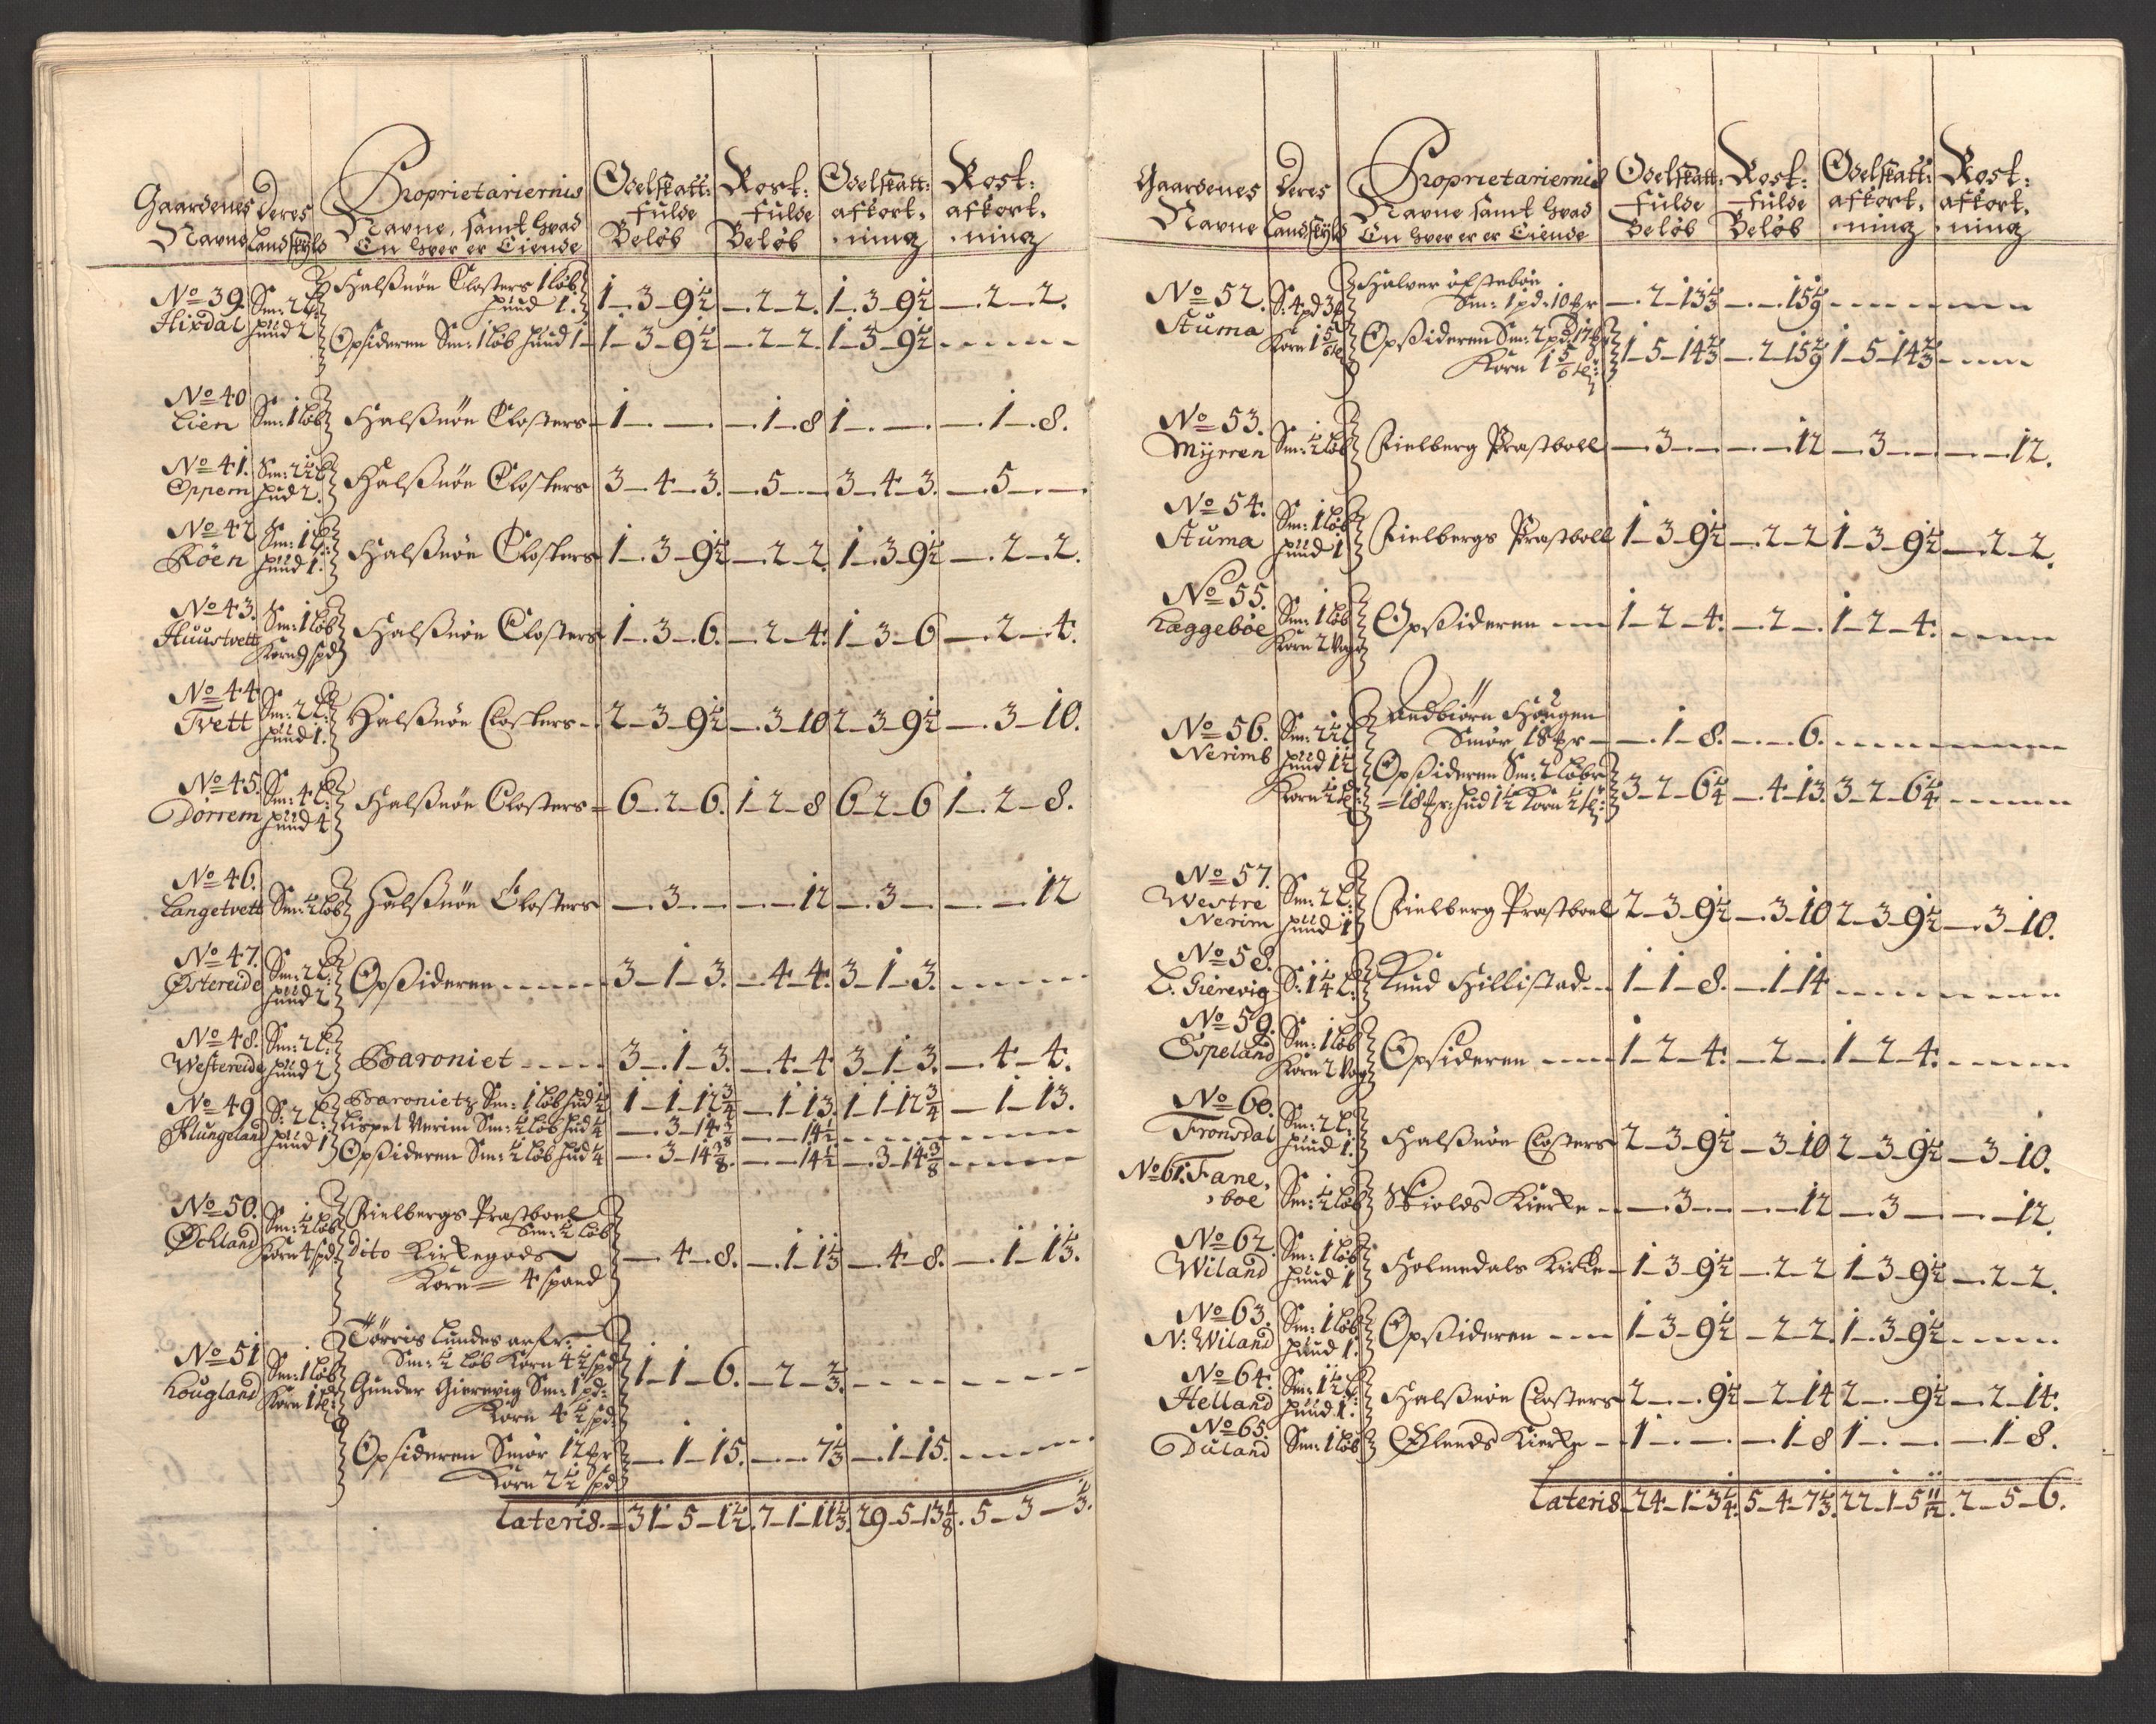 Gaardenes Navne
Deres Landskyld
Proprietariernis Navne, samt hvad En hver er Eiende
Odelskatt: fulde Beløb
Rost: fulde Beløb
Odelskatt: afkort. ning
Rost: afkort. ning
No 39. Hixdal Sm: 2 L: hud 2 Halsnøn Closters 1 løb. hud 1. 1 - 3 - 9½ - 2 - 2. 1 - 3 - 9½ - 2 - 2.
Opsideren Sm: 1 løb hud 1 - 1 - 3 - 9½ - 2 - 2 1 - 3 - 9½
No 40 Lien Sm: 1 løb Halsnøn Closters 1 - - - 1 - 8 1 - - - 1 - 8.
No 41. Oppem Sm: 2½ L hud 2. Halsnøn Closters 3 - 4 - 3. - 5 - 3 - 4 - 3. - 5 -
No 42 Röen Sm: 1 L: hud 1. Halsnøn Closters 1 - 3 - 9½ - 2 - 2. 1 - 3 - 9½ - 2 - 2.
No 43. Huustvett Sm: 1 løb Korn 9 spd Halsnøn Closters 1 - 3 - 6. - 2 - 4. 1 - 3 - 6 - 2 - 4.
No 44 Tvett Sm: 2 L: hud 1. Halsnøn Closters - 2 - 3 - 9½ - 3 - 10 2 - 3 - 9½ - 3 - 10.
No 45. Dörrem Sm: 4 L: hud 4 Halsnøn Closters - 6 - 2 - 6. 1 - 2 - 8 6 - 2 - 6 1 - 2 - 8.
No 46. Langetvett Sm: ½ løb Halsnøn Closters - 3 - - - 12 - 3 - - - 12
No 47. Østereide Sm: 2 L: hud 2 Opsideren 3 - 1 - 3. - 4 - 4. 3 - 1 - 3.
No 48. Westereide Sm: 2 L: hud 2 Baroniet 3 - 1 - 3. - 4 - 4 3 - 1 - 3. - 4 - 4.
No 49 Klungeland S: 2 L: hud 1 Baroniets Sm: 1 løb hud ½ 1 - 1 - 12¾ - 1 - 13. 1 - 1 - 12¾ - 1 - 13.
Lispet Nerim Sm: ½ løb hud ¼ - 3 - 14⅜ - - 14½
Opsideren Sm: ½ løb hud ¼ - 3 - 14⅜. - - 14½ - 3 - 14⅜
No 50. Öchland Sm: ½ løb Korn 4 spd Fielbergs Præstboel Sm: ½ løb
Dito Kirkegods Korn = 4 spand - 4 - 8. - 1 - 1⅓ - 4 - 8. - 1 - 1⅓.
No 51 Lougland Sm: 1 løb Korn 1 tl: Törris Lundes arfr.
Sm: ½ løb Korn 4½ spd
Gunder Gierevig Sm: 1 pd: Korn 4½ spd. 1 - 1 - 6. - 2 - ⅔.
Opsideren Smör 12 mr Korn 2½ spd - 1 - 15. - - 7⅓ - 1 - 15.
Lateris = 31 - 5 - 1½. 7 - 1 - 11⅓. 29 - 5 - 13⅛. 5 - 3 - ⅓.
Gaardenes Navne
Deres Landskyld
Proprietariernis Navne samt hvad En hver er er Eiende
Odelskatt: fulde Beløb
Rost: fulde Beløb
Odelskatt: afkort. ning
Rost: afkort. ning
No 52. Stuma S: 4 pd 3 mr Korn 1⅚ tl Halver Öfstebön
Sm: 1 pd: 10 mr - 2 - 13⅓ - - 15⅑
Opsideren Sm: 2 pd: 17 mr Korn 1⅚ tl: 1 - 5 - 14⅔ - 2 - 15⅔ 1 - 5 - 14⅔
No 53. Mÿrren Sm: ½ løb Fielberg Præstboll - 3 - - - 12 - 3 - - - 12.
No 54. Stuma Sm: 1 løb hud 1 Fielbergs Præstboll 1 - 3 - 9½ - 2 - 2 1 - 3 - 9½ - 2 - 2.
No 55. Haggeböe Sm: 1 løb Korn 2 Vog Opsideren 1 - 2 - 4. - 2 - 1 - 2 - 4.
No 56. Nerimb Sm: 2½ L hud 1½ Korn ½ tl: Andbiörn Hougen
Smör 18 mr - 1 - 8. - - 6.
Opsideren Sm: 2 løber = 18 mr: hud 1½ Korn ½ tl: 3 - 2 - 6¼ - 4 - 13. 3 - 2 - 6¼
No 57. Westre Nerim Sm: 2 L: hud 1 Fielberg Præstboel 2 - 3 - 9½ - 3 - 10 2 - 3 - 9½ - 3 - 10.
No 58. L. Gierevig S: 1¼ L: Knud Hillistad 1 - 1 - 8. - 1 - 14
No 59. Espeland Sm: 1 løb Korn 2 Vog Opsideren 1 - 2 - 4. - 2 - 1 - 2 - 4.
No 60. Fronsdal Sm: 2 L: hud 1. Halsnøn Closters 2 - 3 - 9½ - 3 - 10 2 - 3 - 9½ - 3 - 10.
No 61. Fane, boe Sm: ½ løb Skiolds Kirke - 3 - - - 12 - 3 - - - 12.
No 62. Wiland Sm: 1 løb hud 1 Holmedals Kirke - 1 - 3 - 9½ - 2 - 2 1 - 3 - 9½ - 2 - 2.
No 63. N: Wiland Sm: 1 løb hud 1. Opsideren 1 - 3 - 9½ - 2 - 2. 1 - 3 - 9½
No 64. Helland Sm: 1½ L: hud 1. Halsnøn Closters 2 - - 9½ - 2 - 14 2 - - 9½ - 2 - 14.
No 65. Düland Sm: 1 løb Ølends Kirke - 1 - - - 1 - 8 1 - - - 1 - 8.
Lateris 24 - 1 - 3¼. 5 - 4 - 7⅓. 22 - 1 - 5 11/12. 2 - 5 - 6.